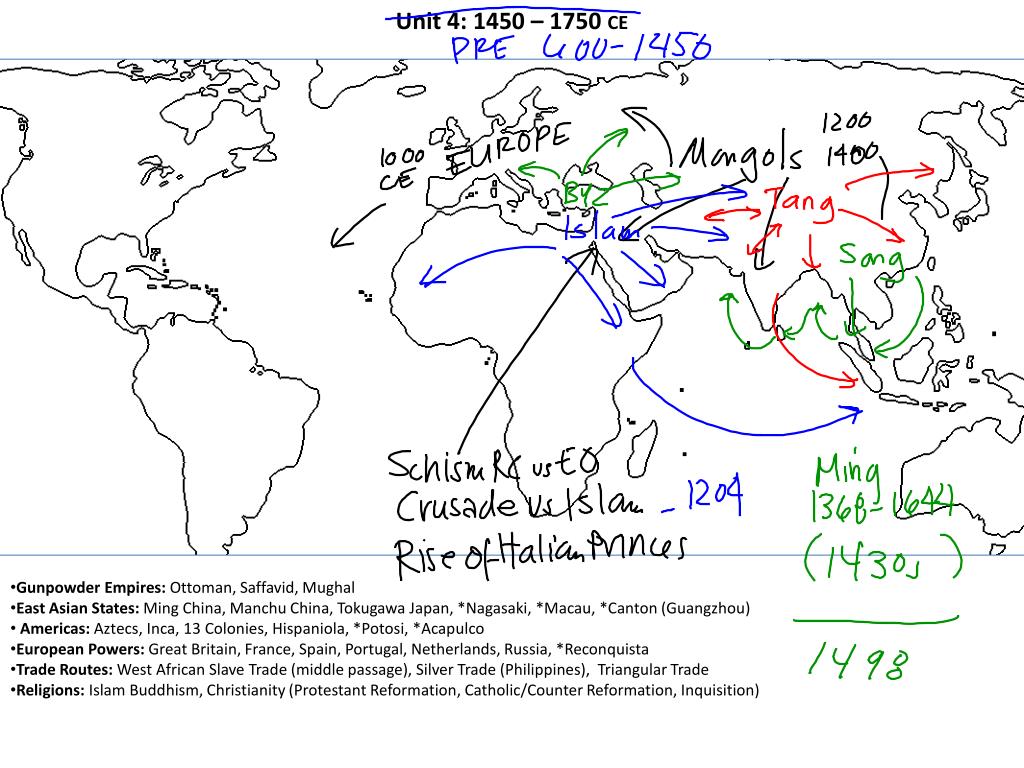 Unit 4: 1450 – 1750 CE
PRE 600-1450
1200
1400
1000
CE
EUROPE
Mongols
BYZ
Tang
Islam
Song
Schism RC vs EO
Crusade vs Islam - 1204
Rise of Italian Princes
Ming
1368-1644
(1430s)
1498
•Gunpowder Empires: Ottoman, Saffavid, Mughal
•East Asian States: Ming China, Manchu China, Tokugawa Japan, *Nagasaki, *Macau, *Canton (Guangzhou)
• Americas: Aztecs, Inca, 13 Colonies, Hispaniola, *Potosi, *Acapulco
•European Powers: Great Britain, France, Spain, Portugal, Netherlands, Russia, *Reconquista
•Trade Routes: West African Slave Trade (middle passage), Silver Trade (Philippines), Triangular Trade
•Religions: Islam Buddhism, Christianity (Protestant Reformation, Catholic/Counter Reformation, Inquisition)